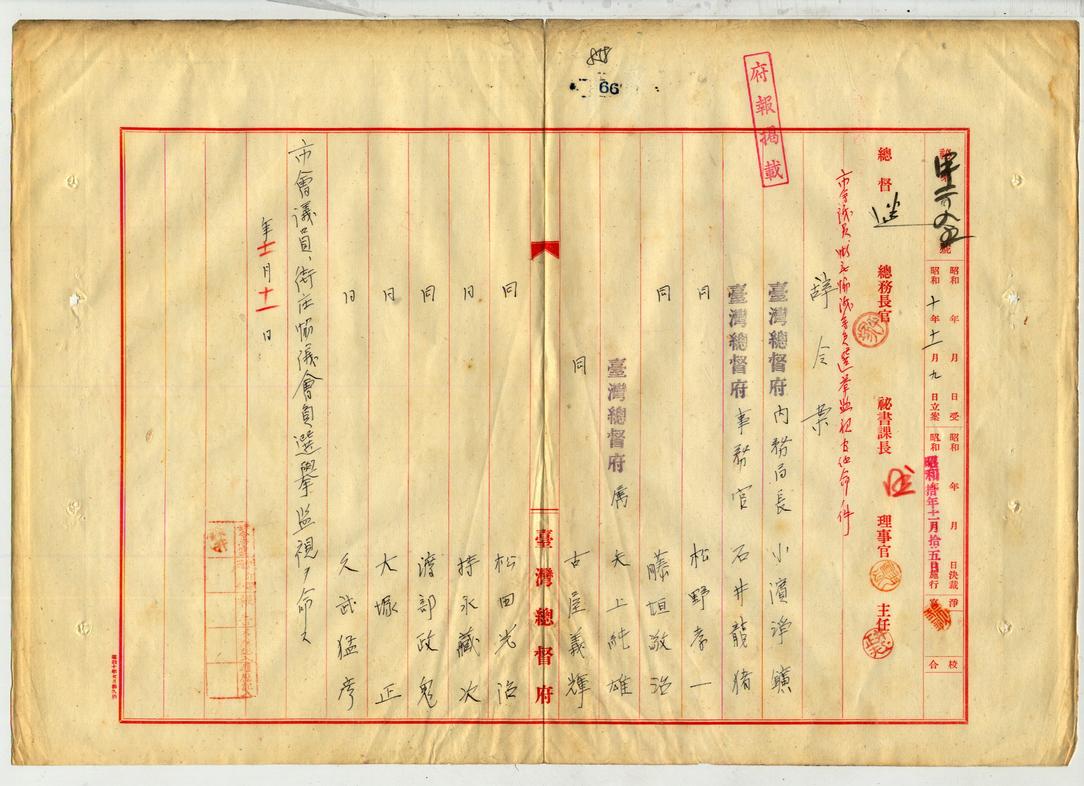 66
府報掲載
昭和 年 月 日受
昭和十年十一月九日立案
昭和 年 月 日決裁
昭和拾年十一月拾五日施行
淨
校合
總督
總務長官
祕書課長
理事官
主任
市會議員、街庄協議會員選擧監視官任命ノ件
辭令案
臺灣總督府內務局長 小濱淨鑛
臺灣總督府事務官 石井龍猪
同 松野孝一
同 藤垣敬治
臺灣總督府屬 夫上純雄
同 古屋義輝
臺灣總督府
同 松田光治
同 持永藏次
同 渡部政鬼
同 大塚正
同 久武猛彥
市會議員、街庄協議會員選擧監視ヲ命ス
年十一月十一日